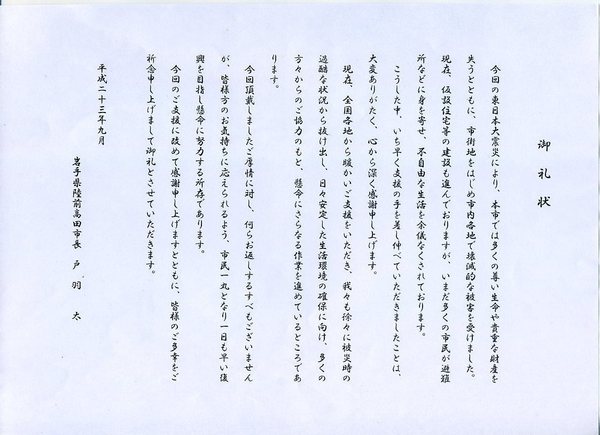 御礼状
今回の東日本大震災により、本市では多くの尊い生命や貴重な財産を
失うとともに、市街地をはじめ市内各地で壊滅的な被害を受けました。
現在、仮設住宅等の建設も進んでおりますが、いまだ多くの市民が避難
所などに身を寄せ、不自由な生活を余儀なくされております。
こうした中、いち早く支援の手を差し伸べていただきましたことは、
大変ありがたく、心から深く感謝申し上げます。
現在、全国各地から暖かいご支援をいただき、我々も徐々に被災時の
過酷な状況から抜け出し、日々安定した生活環境の確保に向け、多くの
方々からのご協力のもと、懸命にさらなる作業を進めているところであ
ります。
今回頂戴しましたご厚情に対し、何らお返しするすべもございません
が、皆様方のお気持ちに応えられるよう、市民一丸となり一日も早い復
興を目指し懸命に努力する所存であります。
今回のご支援に改めて感謝申し上げますとともに、皆様のご多幸をご
祈念申し上げまして御礼とさせていただきます。
平成二十三年九月
岩手県陸前高田市長 戸羽 太